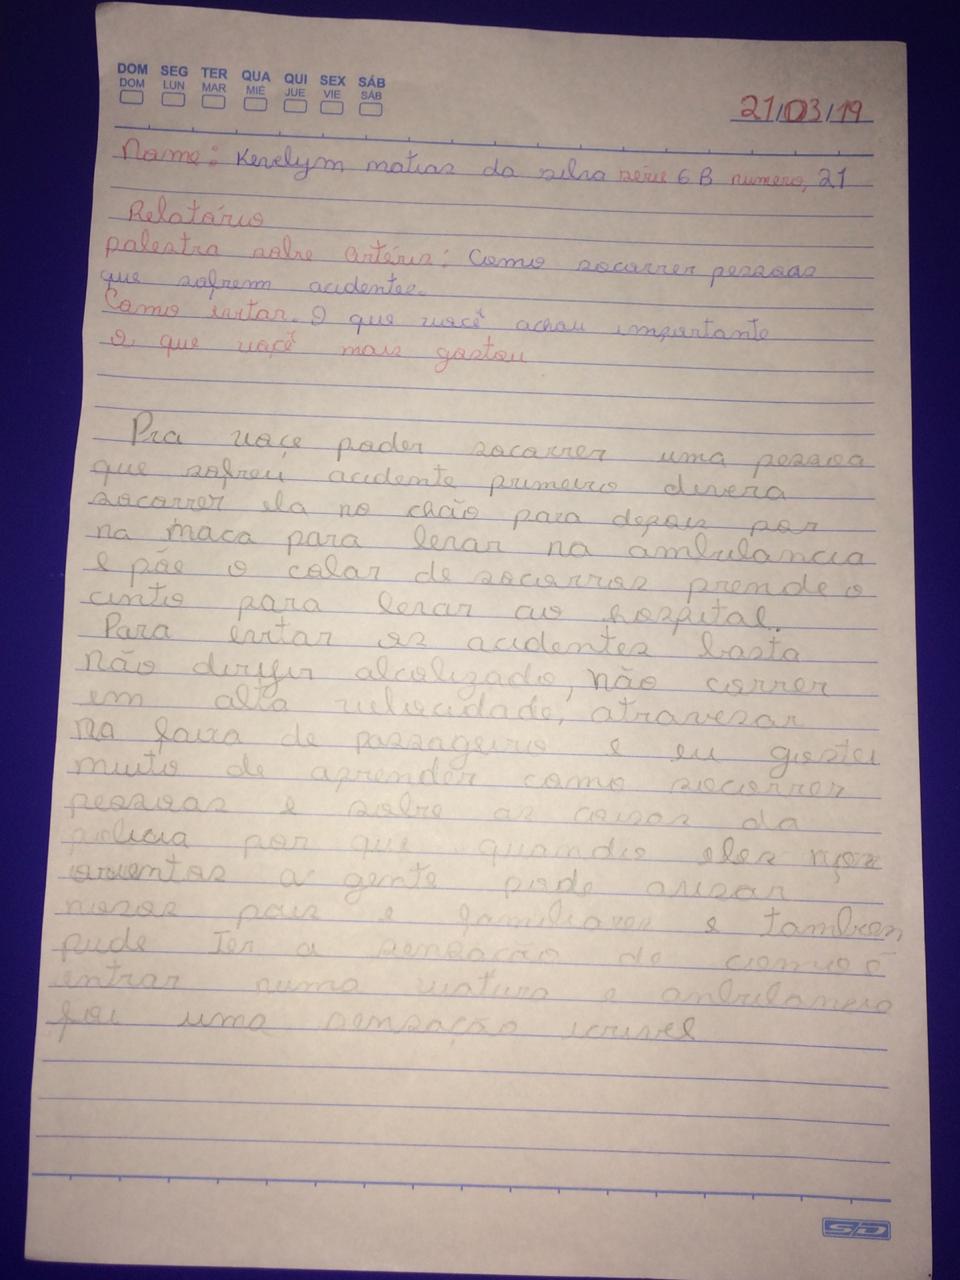 DOM SEG TER QUA QUI SEX SÁB
DOM LUN MAR MIÉ JUE VIE SÁB
21/03/19
Name: Kerelym matias da silva série 6 B numero, 21
Relatário
palestra sobre Artéris: Como socorrer pessoas
que sofrem acidentes.
Como evitar. O que você achou importante
O que você mais gostou
Pra voçe poder socorrer uma pessoa
que sofreu acidente primeiro devera
socorrer ela no chão para depois por
na maca para levar na ambulancia
e põe o colar de socorros prende o
cinto para levar ao hospital.
Para evitar os acidentes basta
não dirigir alcolizado, não correr
em alta velocidade, atravesar
na faixa de passageiro e eu gostei
muito de aprender como socorrer
pessoas e sobre as coisas da
policia por que quando eles nos
orientas a gente pode avisar
nosos pais e familiares e tambem
pude Ter a sensação de como é
entrar numa viatura e ambulancia
foi uma sensação icrivel
SD